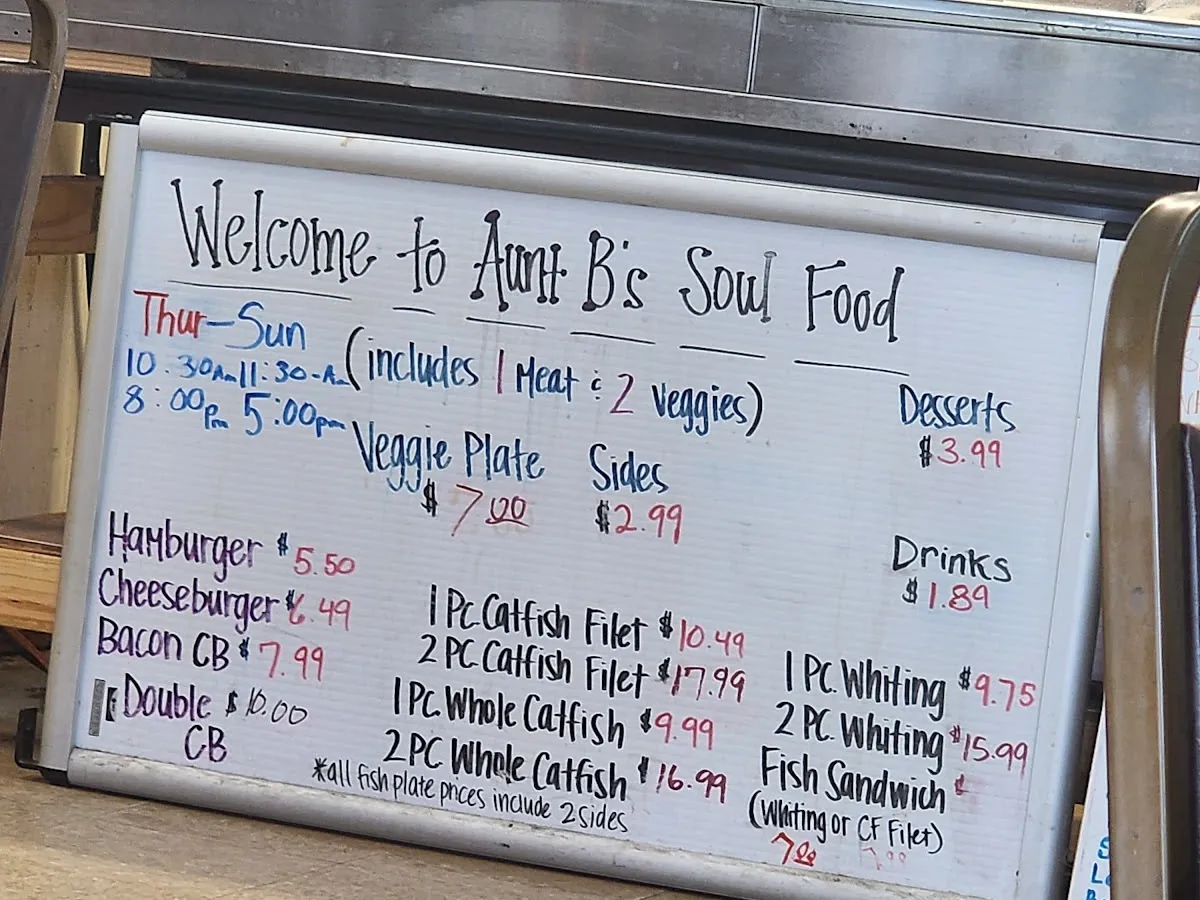 Welcome to Aunt B's Soul Food
Thur-Sun
10:30Am 11:30-A.m
8:00pm 5:00pm
(includes 1 Meat & 2 Veggies)
Veggie Plate
$7.00
Sides
$2.99
Desserts
$3.99
Drinks
$1.89
Hamburger $5.50
Cheeseburger $6.49
Bacon CB $7.99
Double $10.00
CB
1 Pc Catfish Filet $10.49
2 PC Catfish Filet $17.99
1 PC Whole Catfish $9.99
2 PC Whole Catfish $16.99
*all fish plate prices include 2 sides
1 Pc. Whiting $9.75
2 PC. Whiting $15.99
Fish Sandwich $
(Whiting or CF Filet)
7.00